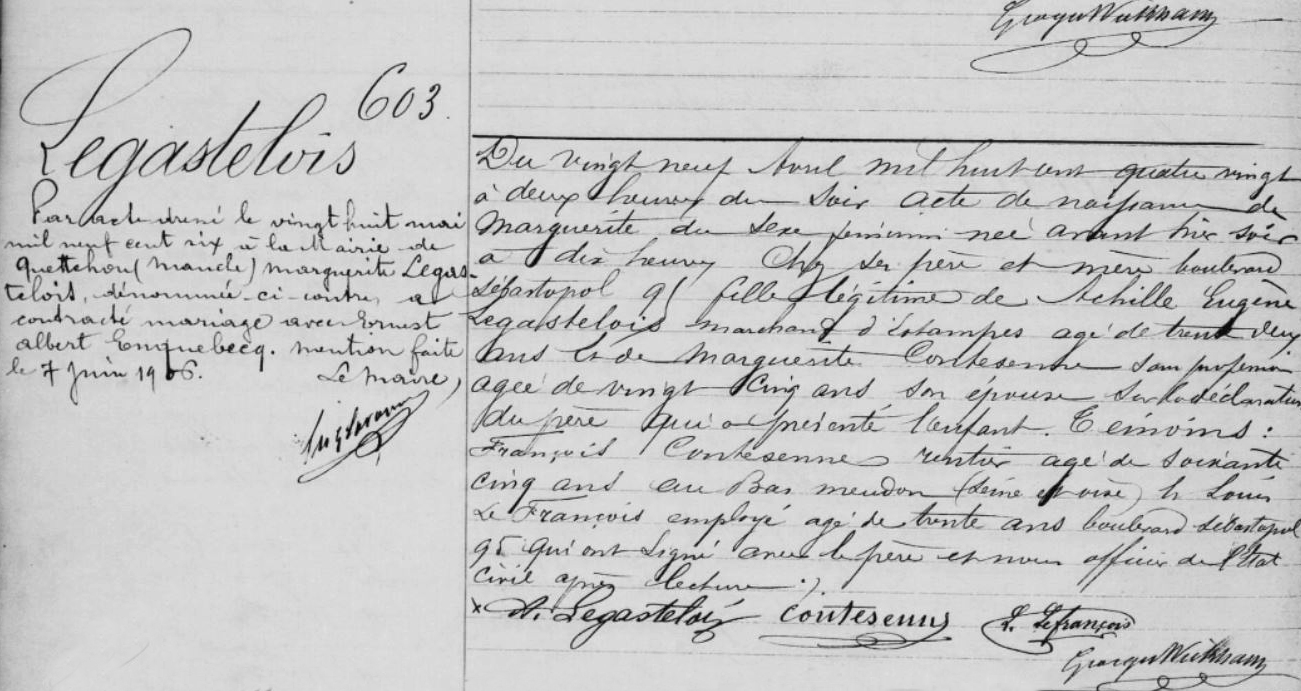 Georges Wickham
603.
Legastelois
Par acte dressé le vingt huit mai
mil neuf cent six à la Mairie de
Quettehou (Manche) Marguerite Legas-
telois, dénommée ci-contre, a
contracté mariage avec Ernest
Albert Enquebecq. Mention faite
le 7 Juin 1906.
Le Maire,
Du vingt neuf Avril mil huit cent quatre vingt
à deux heures du soir acte de naissance de
Marguerite du sexe féminin née avant hier soir
à dix heures chez ses père et mère boulevard
Sébastopol 95 fille légitime de Achille Eugène
Legastelois marchand d'estampes agé de trente deux
ans et de Marguerite Contesenne sans profession
agée de vingt cinq ans son épouse sur la déclaration
du père qui a présenté l'enfant. Témoins :
François Contesenne rentier agé de soixante
cinq ans au Bas Meudon (Seine et oise) et Louis
Le François employé agé de trente ans boulevard Sébastopol
95 qui ont signé avec le père et nous officier de l'Etat
civil après lecture ./.
x A. Legastelois Contesenne L. Lefrançois
Georges Wickham